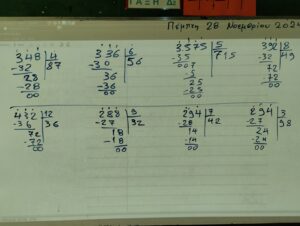 ΤΑΞΗ Δ
Πέμπτη 28 Νοεμβρίου 202
348 4
-32 87
28
-28
00
336 6
-30 56
36
-36
00
3575 5
-35 715
007
-5
25
-25
00
392 8
-32 49
72
72
00
432 12
-36 36
72
-72
00
288 9
-27 32
18
-18
00
294 7
-28 42
14
-14
00
294 3
-27 98
24
-24
00